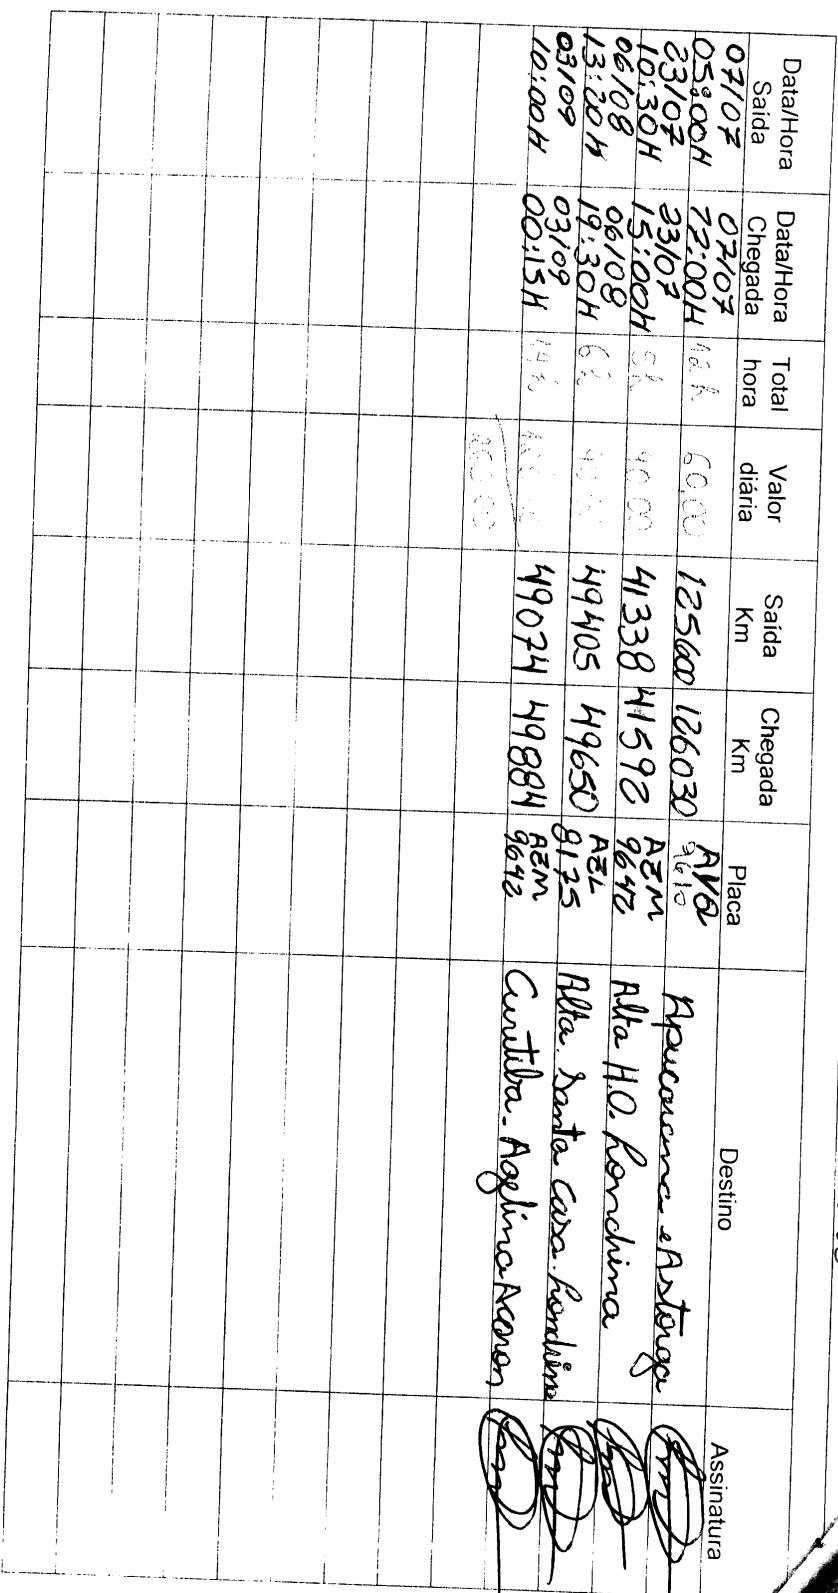 Data/Hora Saída Data/Hora Chegada Total hora Valor diária Saída Km Chegada Km Placa Destino Assinatura
07/07 05:00H 07/07 17:00H 12h 60,00 125600 126030 AVQ 9610 Apucarana e Astorga
23/07 10:30H 23/07 15:00H 5h 40,00 41338 41592 AZM 9642 Alta H.O. Londrina
06/08 13:20H 06/08 19:30H 6h 49405 49650 AZL 8175 Alta. Santa Casa. Londrina
03/09 10:00H 03/09 00:15H 14h 49074 49884 AZM 9642 Curitiba.